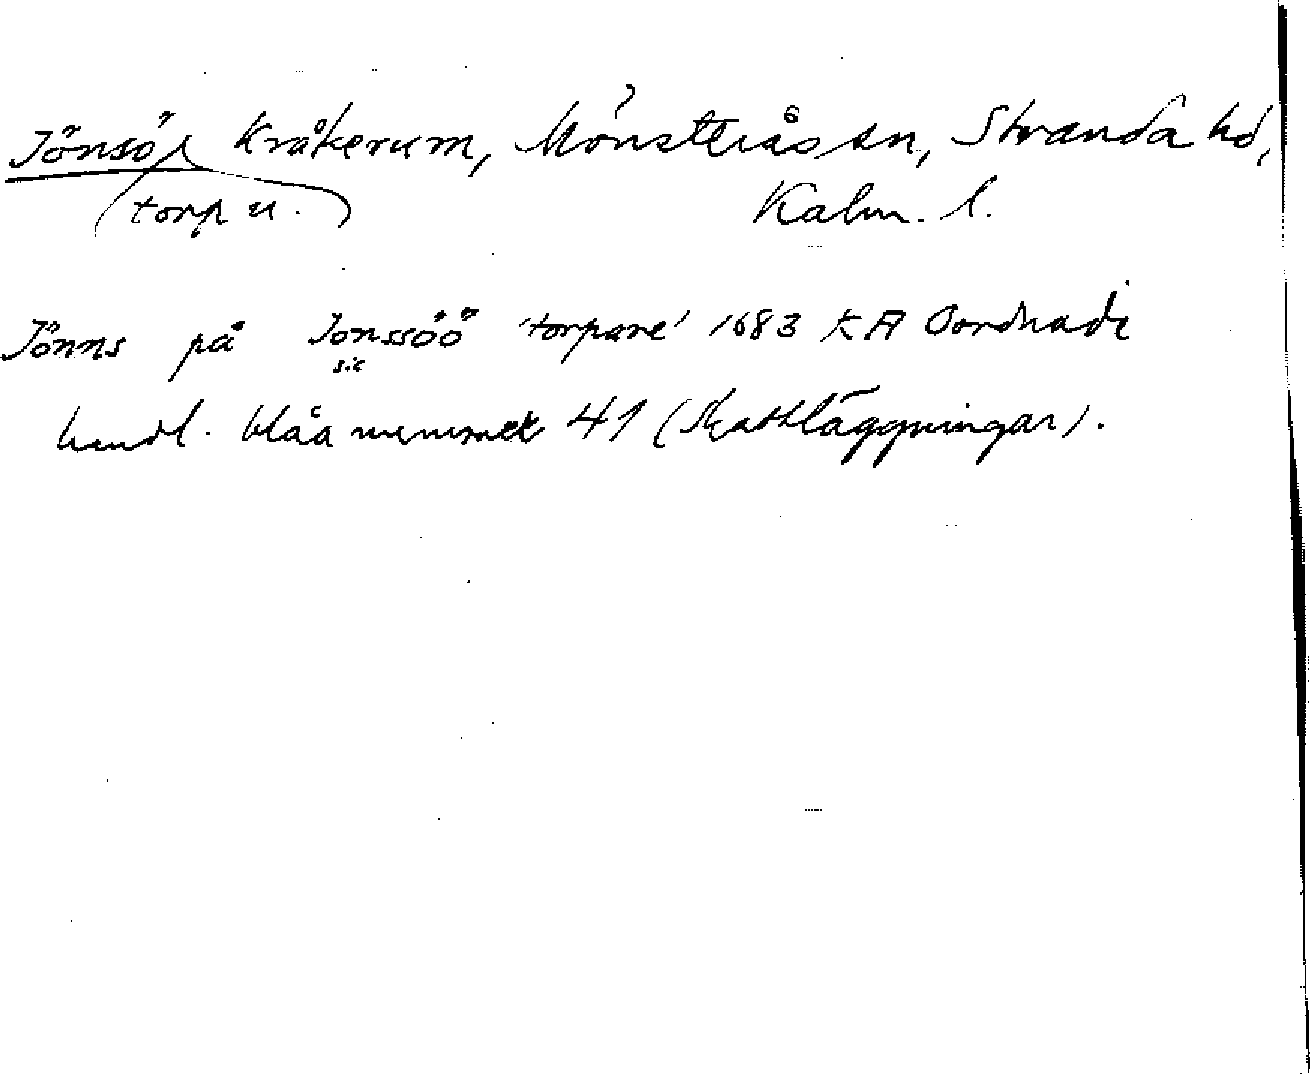 Jönsö, Kråkerum, Mönsterås sn, Stranda hd,
(torp u.) Kalm. l.
Jönns på Jonssöö 'torpare' 1683 KA Oordnade
sic
handl. blåa nummer 41 (Skattläggningar).